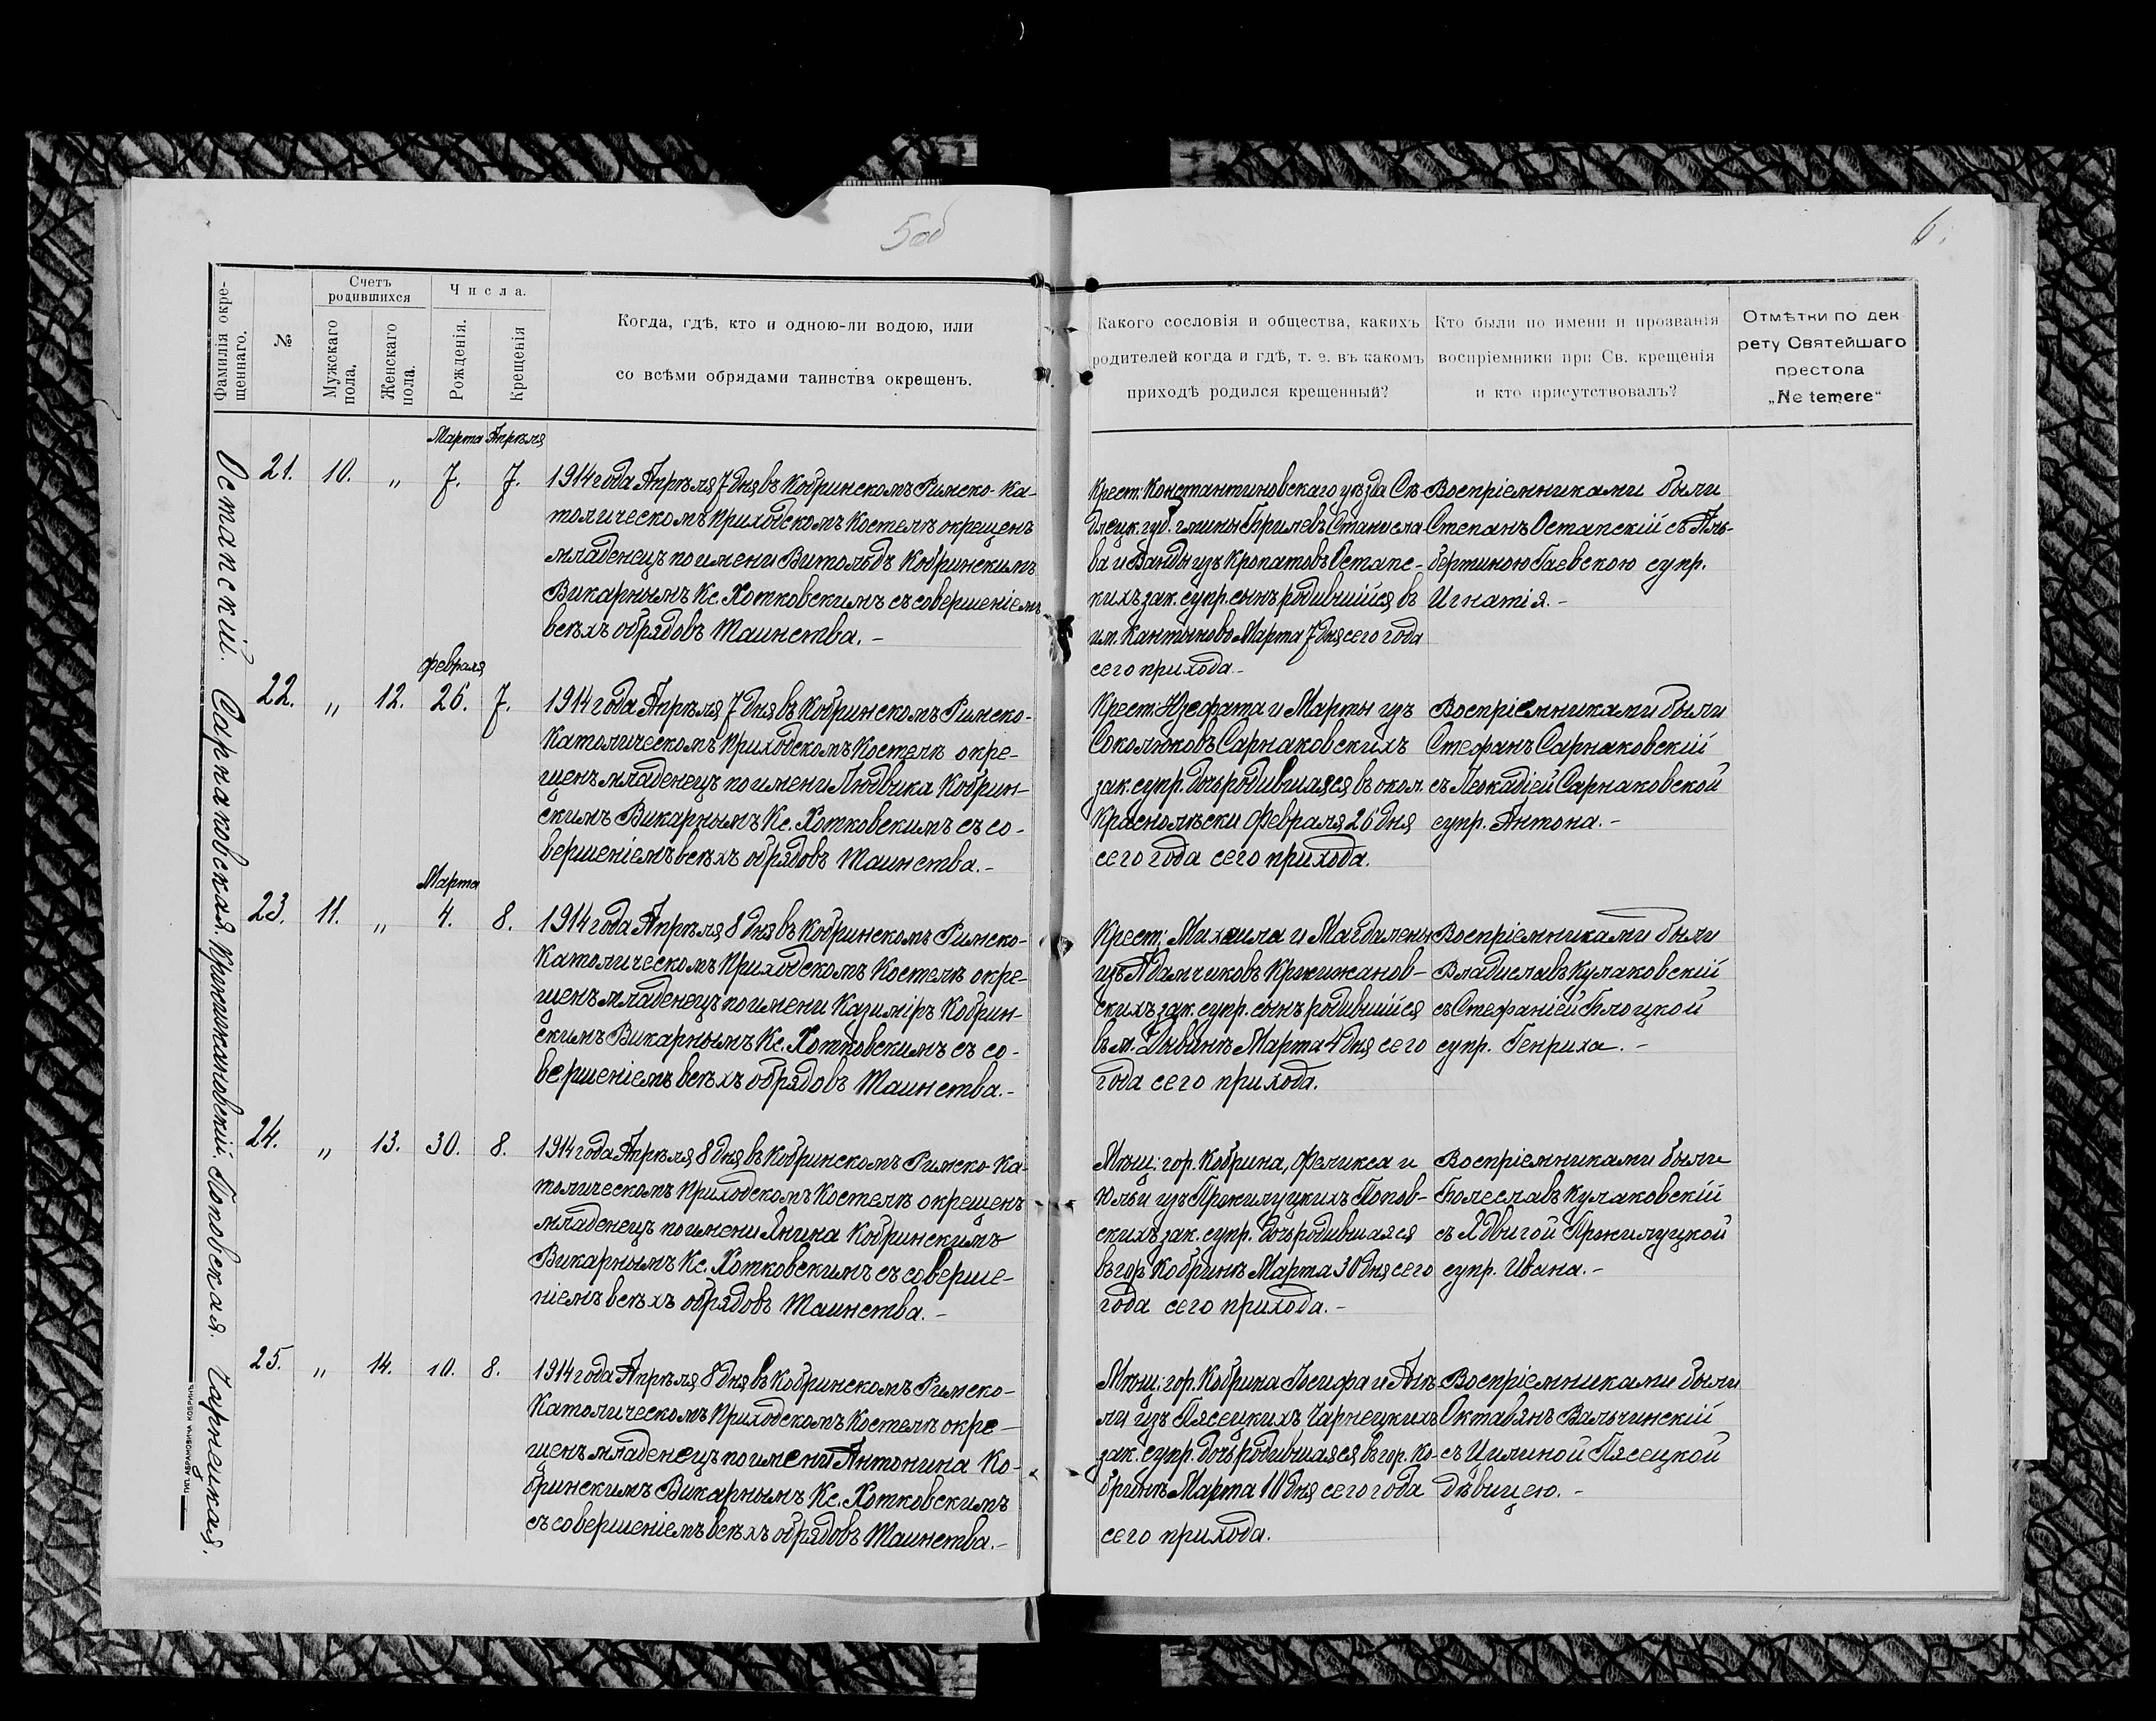 5об
6.
Фамилія окре-
щеннаго.
№
Счетъ
родившихся
Мужскаго
пола.
Женскаго
пола.
Числа.
Рожденія.
Крещенія
Когда, гдѣ, кто и одною-ли водою, или
со всѣми обрядами таинства окрещенъ.
Какого сословія и общества, какихъ
родителей когда и гдѣ, т. е. въ какомъ
приходѣ родился крещенный?
Кто были по имени и прозванія
воспріемники при Св. крещенія
и кто присутствовалъ?
Отмѣтки по дек
рету Святейшаго
престола
„Ne temere“
Остапскій.
Марта Апрѣля
21. 10. „ 7. 7.
1914 года Апрѣля 7 дня въ Кобринскомъ Римско-Ка-
толическомъ Приходскомъ Костелѣ окрещенъ
младенецъ по имени Витольдъ Кобринскимъ
Викарнымъ Кс. Хотковскимъ съ совершеніемъ
всѣхъ обрядовъ Таинства.-
Крест. Константиновскаго уѣзда Сѣ-
длецк. губ. гмины Старилевъ Станисла
ва и Ванды изъ Кропатовъ Остапс-
кихъ зак. супр. сынъ родившійся въ
им. Кантыново Марта 7 дня сего года
сего прихода.-
Воспріемниками были
Степанъ Остапскій съ Аль-
бертиною Гаевскою супр.
Игнатія.-
Сарнаковская.
Февраля
22. „ 12. 26. 7.
1914 года Апрѣля 7 дня въ Кобринскомъ Римско-
Католическомъ Приходскомъ Костелѣ окре-
щенъ младенецъ по имени Людвика Кобрин-
скимъ Викарнымъ Кс. Хотковскимъ съ со-
вершеніемъ всѣхъ обрядовъ Таинства.-
Крест: Юзефата и Марты изъ
Соколюковъ Сарнаковскихъ
зак. супр. дочь родившаяся въ окол.
Краснолѣски Февраля 26 дня
сего года сего прихода.
Воспріемниками были
Стефанъ Сарнаковскій
съ Леокадіей Сарнаковской
супр. Антона.-
Кржижановскій.
Марта
23. 11. „ 4. 8.
1914 года Апрѣля 8 дня въ Кобринскомъ Римско-
Католическомъ Приходскомъ Костелѣ окре-
щенъ младенецъ по имени Казиміръ Кобрин-
скимъ Викарнымъ Кс. Хотковскимъ съ со-
вершеніемъ всѣхъ обрядовъ Таинства.-
Крест: Михаила и Магдалены
изъ Адамчиковъ Кржижанов-
скихъ зак. супр. сынъ родившійся
въ м. Дывинѣ Марта 4 дня сего
года сего прихода.
Воспріемниками были
Владиславъ Кулаковскій
съ Стефаніей Блоцкой
супр. Генриха.-
Поповская.
24. „ 13. 30. 8.
1914 года Апрѣля 8 дня въ Кобринскомъ Римско-Ка-
толическомъ Приходскомъ Костелѣ окрещенъ
младенецъ по имени Янина Кобринскимъ
Викарнымъ Кс. Хотковскимъ съ соверше-
ніемъ всѣхъ обрядовъ Таинства.-
Мѣщ: гор. Кобрина, Феликса и
Юліи изъ Пронилуцкихъ Попов-
скихъ зак. супр. дочь родившаяся
въ гор. Кобринѣ Марта 30 дня сего
года сего прихода.-
Воспріемниками были
Болеславъ Кулаковскій
съ Ядвигой Пронилуцкой
супр. Ивана.-
Чарнецкая.
25. „ 14. 10. 8.
1914 года Апрѣля 8 дня въ Кобринскомъ Римско-
Католическомъ Приходскомъ Костелѣ окре-
щенъ младенецъ по имени Антонина Ко-
бринскимъ Викарнымъ Кс. Хотковскимъ
съ совершеніемъ всѣхъ обрядовъ Таинства.-
Мѣщ: гор. Кобрина Іосифа и Анѣ-
ли изъ Пясецкихъ Чарнецкихъ
зак. супр. дочь родившаяся въ гор. Ко-
бринѣ Марта 10 дня сего года
сего прихода.
Воспріемниками были
Октавянъ Вальчинскій
съ Цилиной Пясецкой
дѣвицею.-
ТИП. АБРАМОВИЧА КОБРИНЪ